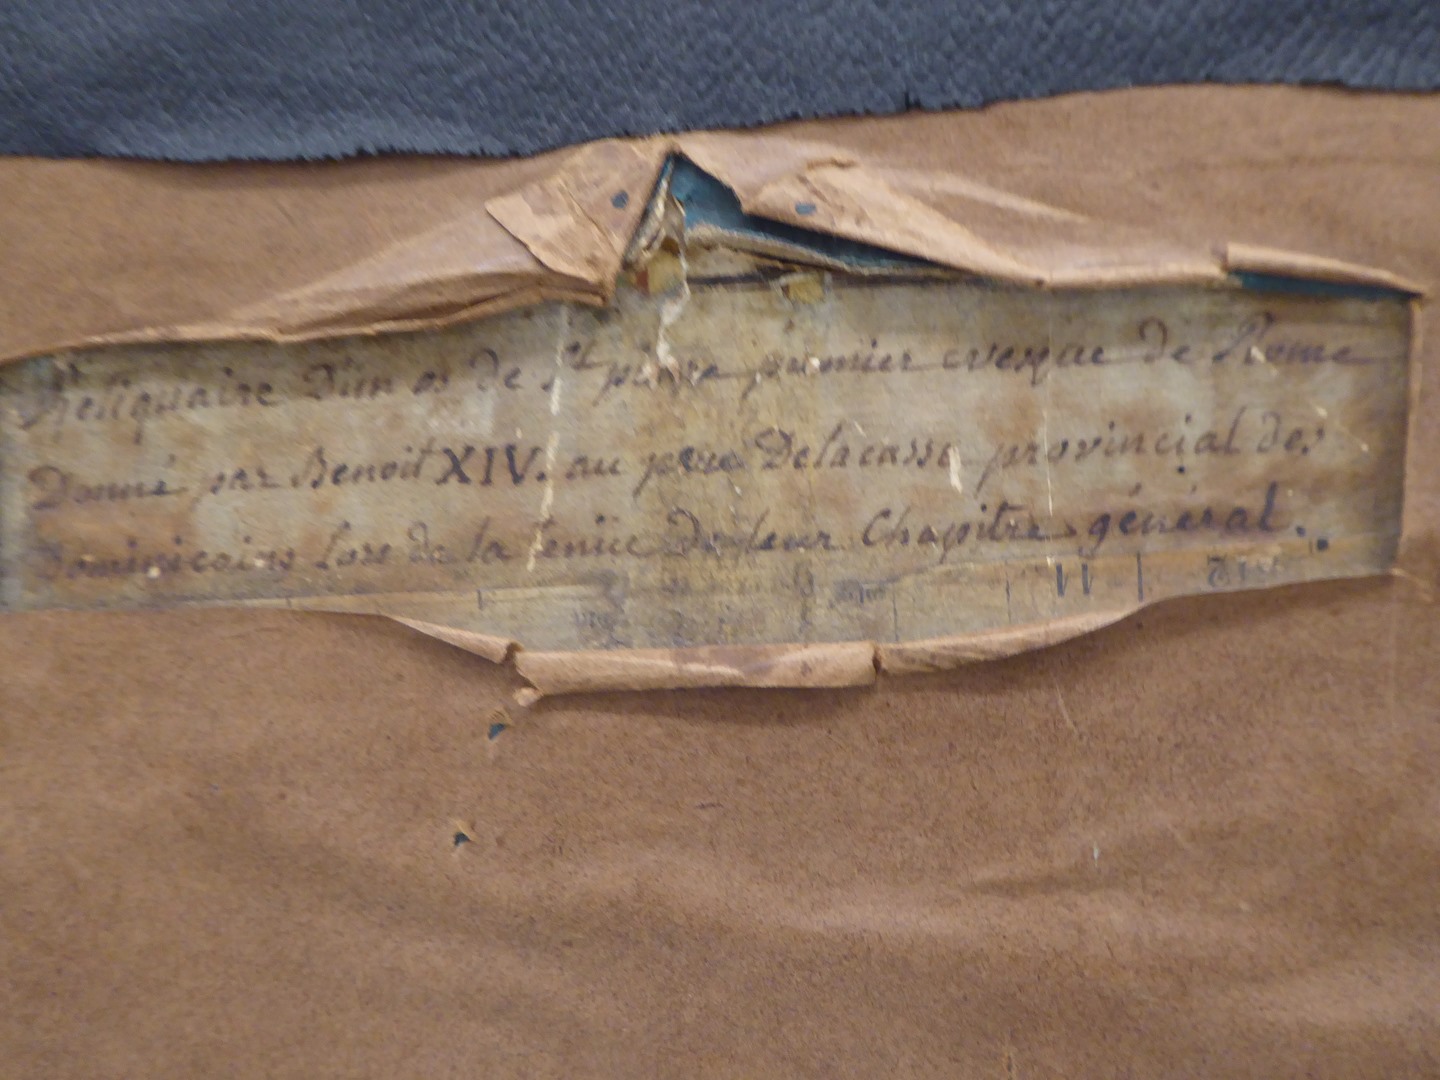 Reliquaire D'un os de St pierre premier evesque de Rome
Donné par Benoit XIV. au pere Delacasse provincial des
Dominicains Lors de la tenüe De leur Chapitre général.
11 12